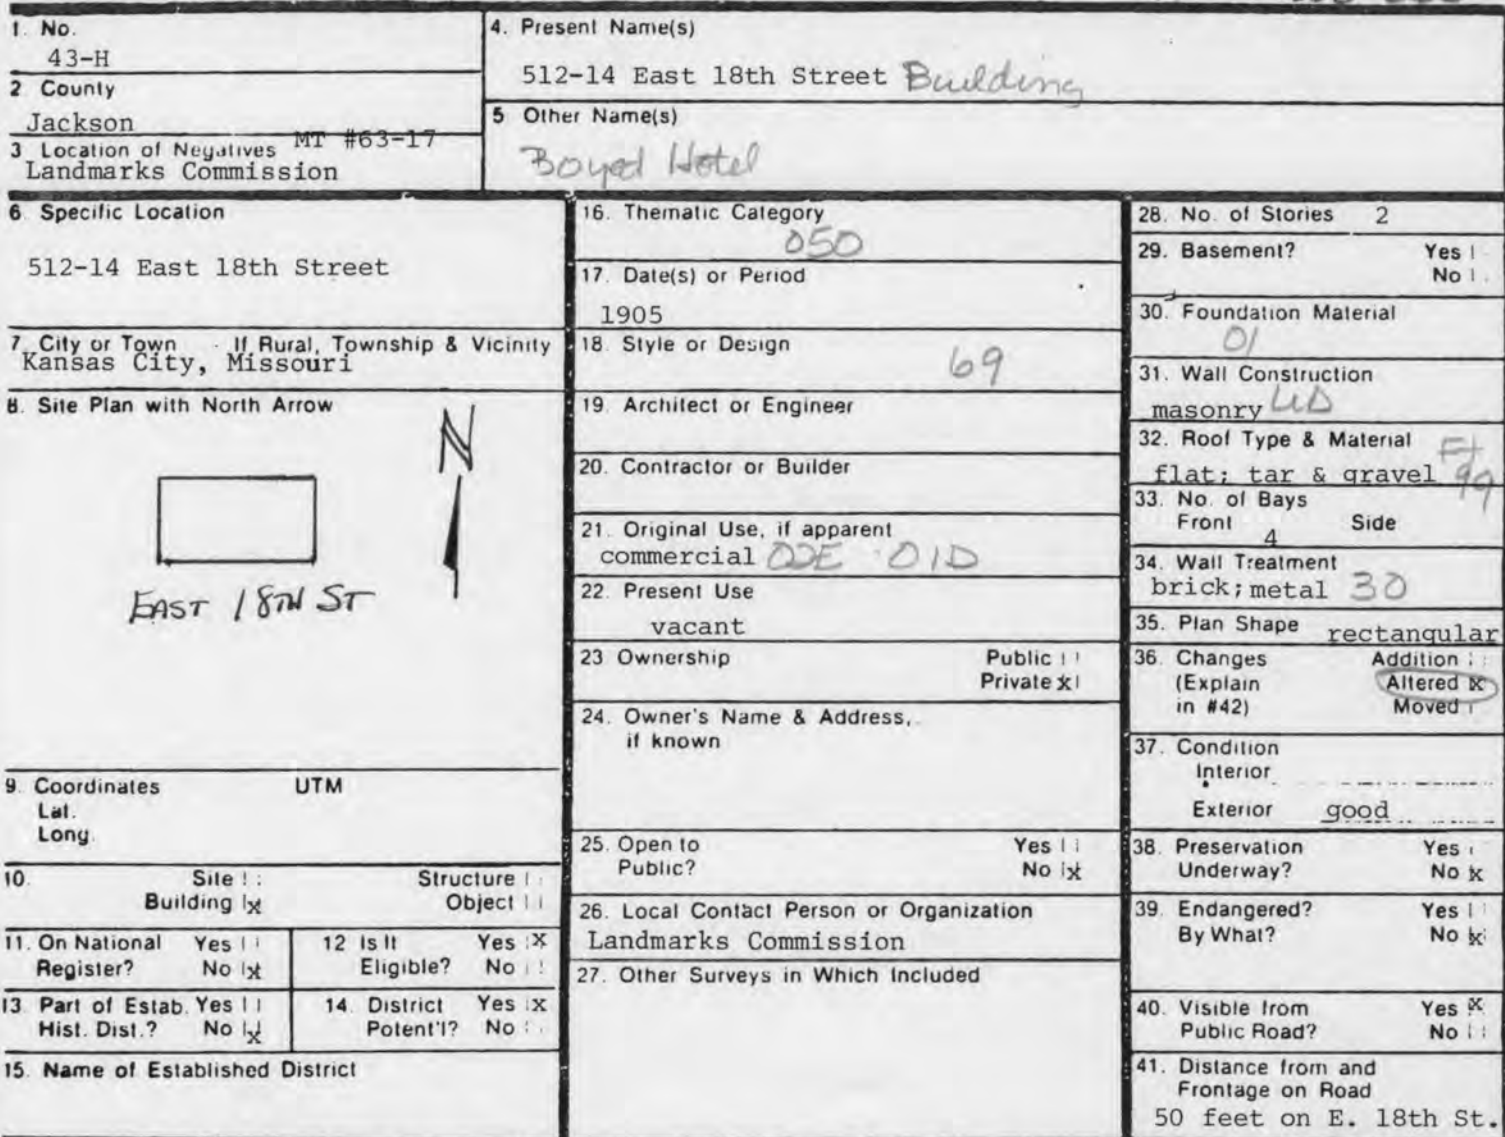 1. No.
43-H
2 County
Jackson
3 Location of Negatives MT #63-17
Landmarks Commission
4. Present Name(s)
512-14 East 18th Street Building
5 Other Name(s)
Boyed Hotel
6. Specific Location
512-14 East 18th Street
7. City or Town If Rural, Township & Vicinity
Kansas City, Missouri
8. Site Plan with North Arrow
N
EAST 18TH ST
9. Coordinates UTM
Lat.
Long.
10. Site
Building x
Structure
Object
11. On National Register? Yes
No x
12 Is It Eligible? Yes x
No
13. Part of Estab. Hist. Dist.? Yes
No x
14. District Potent'l? Yes x
No
15. Name of Established District
16. Thematic Category
050
17. Date(s) or Period
1905
18. Style or Design
69
19. Architect or Engineer
20. Contractor or Builder
21. Original Use, if apparent
commercial 02E 01D
22. Present Use
vacant
23 Ownership Public
Private x
24. Owner's Name & Address,
if known
25. Open to Yes
Public? No x
26. Local Contact Person or Organization
Landmarks Commission
27. Other Surveys in Which Included
28. No. of Stories 2
29. Basement? Yes
No
30. Foundation Material
01
31. Wall Construction
masonry
32. Roof Type & Material
flat; tar & gravel 99
33. No. of Bays
Front 4 Side
34. Wall Treatment
brick; metal 30
35. Plan Shape rectangular
36. Changes Addition
(Explain Altered x
in #42) Moved
37. Condition
Interior
Exterior good
38. Preservation Yes
Underway? No x
39. Endangered? Yes
By What? No x
40. Visible from Yes x
Public Road? No
41. Distance from and
Frontage on Road
50 feet on E. 18th St.